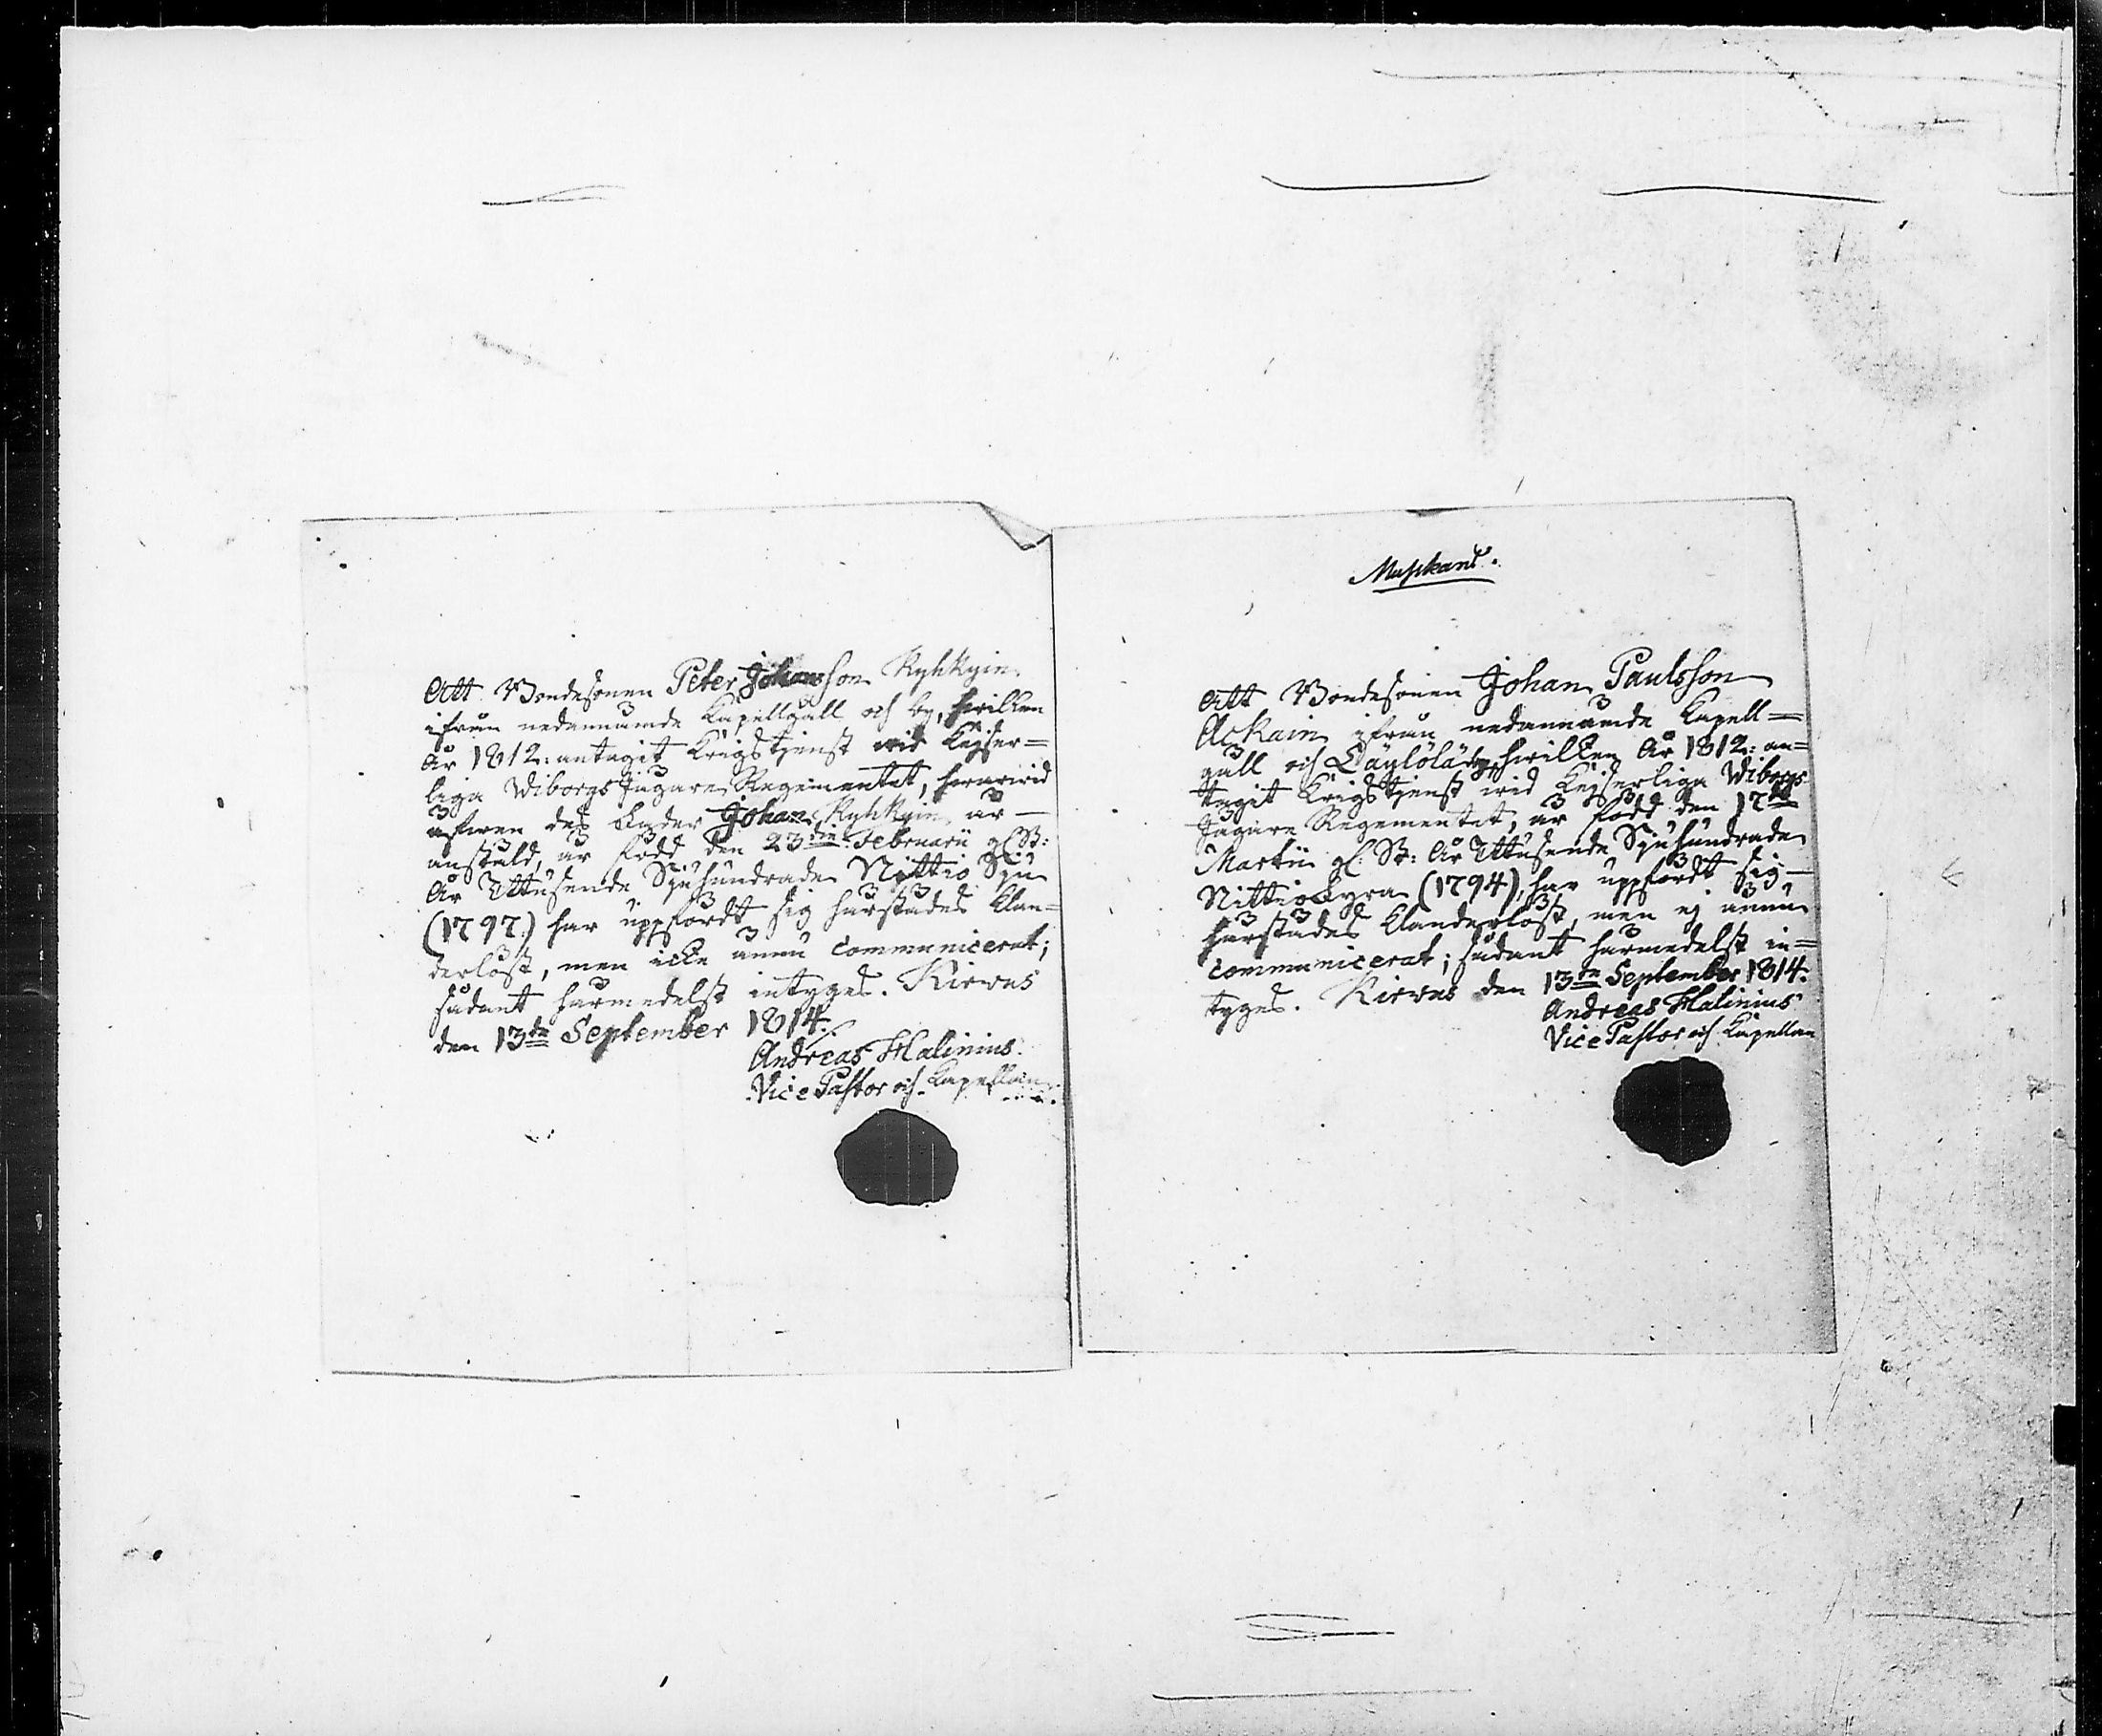 Att Bondesonen Peter Johansson Ryhkyin
ifrån nedannämde Capellgäll och by, hwilken
År 1812: antagit Krigstjenst wid Kejser=
liga Wiborgs Jägare Regementet, hwarwid
äfwen dess Broder Johan Ryhkyin är —
anstäld, är född den 23die Februarii gl. St:
År Ettusende Sjuhundrade Nittio Sju
(1797.) har uppfördt sig härstädes klan=
derlöst, men icke ännu communicerat;
sådant härmedelst intyges. Kirwus
den 13de September 1814.
Andreas Halinius.
Vice Pastor och Capellan
Musikant.
Att Bondesonen Johan Paulsson
Ackain ifrån nedannämde Capell=
gäll och by, hwilken År 1812: an=
tagit Krigstjenst wid Kejserliga Wiborgs
Jägare Regementet, är född den 17de
Martii gl: St: År Ettusende Sjuhundrade
Nittiofyra (1794), har uppfördt sig —
härstädes klanderlöst, men ej ännu
communicerat; sådant härmedelst in=
tyges. Kirwus den 13de September 1814.
Andreas Halinius
Vice Pastor och Capellan